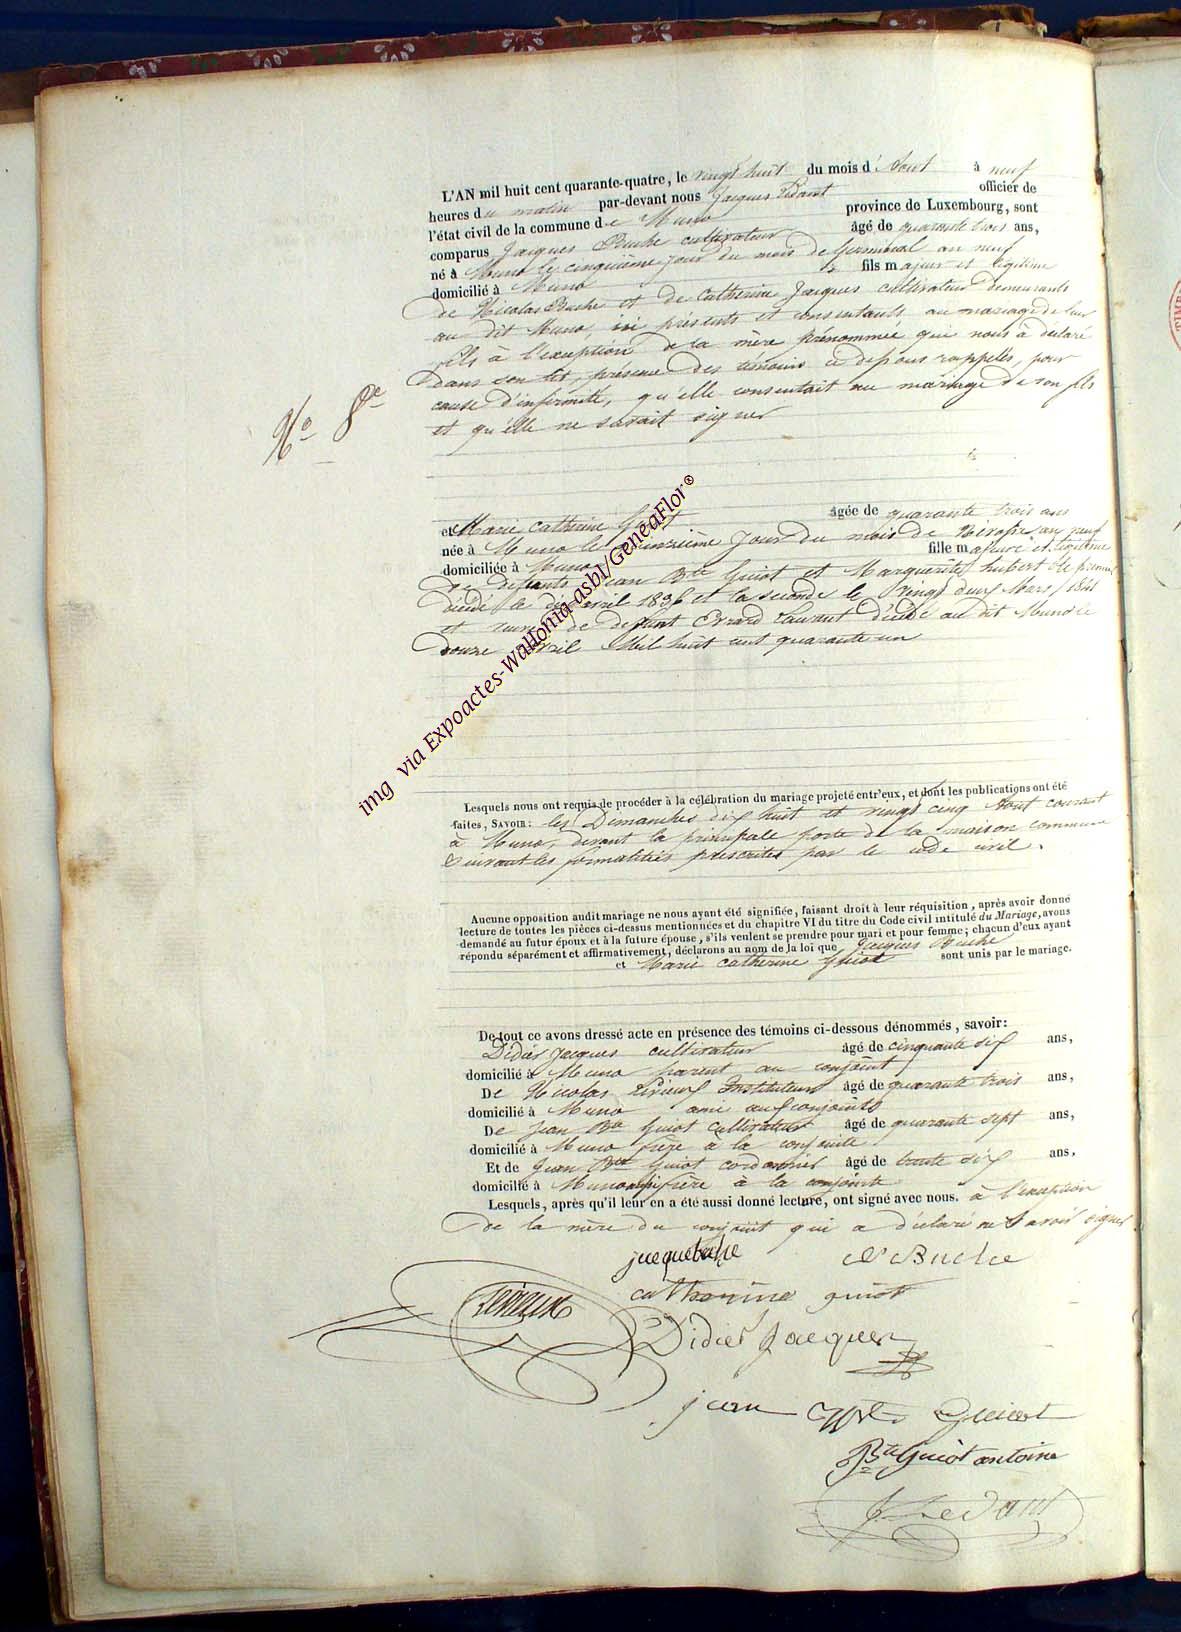 L'AN mil huit cent quarante-quatre, le vingt huit du mois d'Aout à neuf
heures du matin par-devant nous Jacques officier de
l'état civil de la commune de Muno province de Luxembourg, sont
comparus Jacques Buche cultivateur âgé de quarante trois ans,
né à Muno le cinquième jour du mois de Germinal an neuf
domicilié à Muno fils majeur et légitime
de Nicolas Buche et de Catherine Jacques cultivateur demeurants
au dit Muno, ici présents et consentants au mariage de leur
fils à l'exception de la mère prénommée qui nous à déclaré
dans son lit, présence des témoins ci dessous rappelés, pour
cause d'infirmité, qu'elle consentait au mariage de son fils
et qu'elle ne savait signer
No 8e
et Marie Catherine Guiot âgée de quarante trois ans
née à Muno le quinzième jour du mois de Nivose an neuf
domiciliée à Muno fille majeure et légitime
de défunts Jean Bte Guiot et Marguerite hubert le premier
décédé le dix avril 1836 et la seconde le vingt deux Mars 1841
et veuve de défunt Errard Laurant décédé au dit Muno le
douze avril Mil huit cent quarante un
img via Expoactes-Wallonia-asbl/GeneaFlor®
Lesquels nous ont requis de procéder à la célébration du mariage projeté entr'eux, et dont les publications ont été
faites, SAVOIR: les Dimanches dix huit et vingt cinq Aout courant
à Muno, devant la principale porte de la maison commune
suivant les formalités prescrites par le code civil.
Aucune opposition audit mariage ne nous ayant été signifiée, faisant droit à leur réquisition, après avoir donné
lecture de toutes les pièces ci-dessus mentionnées et du chapitre VI du titre du Code civil intitulé du Mariage, avons
demandé au futur époux et à la future épouse, s'ils veulent se prendre pour mari et pour femme; chacun d'eux ayant
répondu séparément et affirmativement, déclarons au nom de la loi que Jacques Buche
et Marie Catherine Guiot sont unis par le mariage.
De tout ce avons dressé acte en présence des témoins ci-dessous dénommés, savoir:
Didier Jacques cultivateur âgé de cinquante six ans,
domicilié à Muno parent au conjoint
De Nicolas Instituteur âgé de quarante trois ans,
domicilié à Muno ami aux conjoints
De Jean Bte Guiot Cultivateur âgé de quarante sept ans,
domicilié à Muno frère à la conjointe
Et de Jean Bte Guiot cordonnier âgé de trente six ans,
domicilié à Muno aussi frère à la conjointe
Lesquels, après qu'il leur en a été aussi donné lecture, ont signé avec nous. à l'exception
de la mère du conjoint qui a déclaré ne savoir signer
jacque buche N Buche
catherine guiot
Didier Jacques
jean Guiot
Bte Guiot antoine